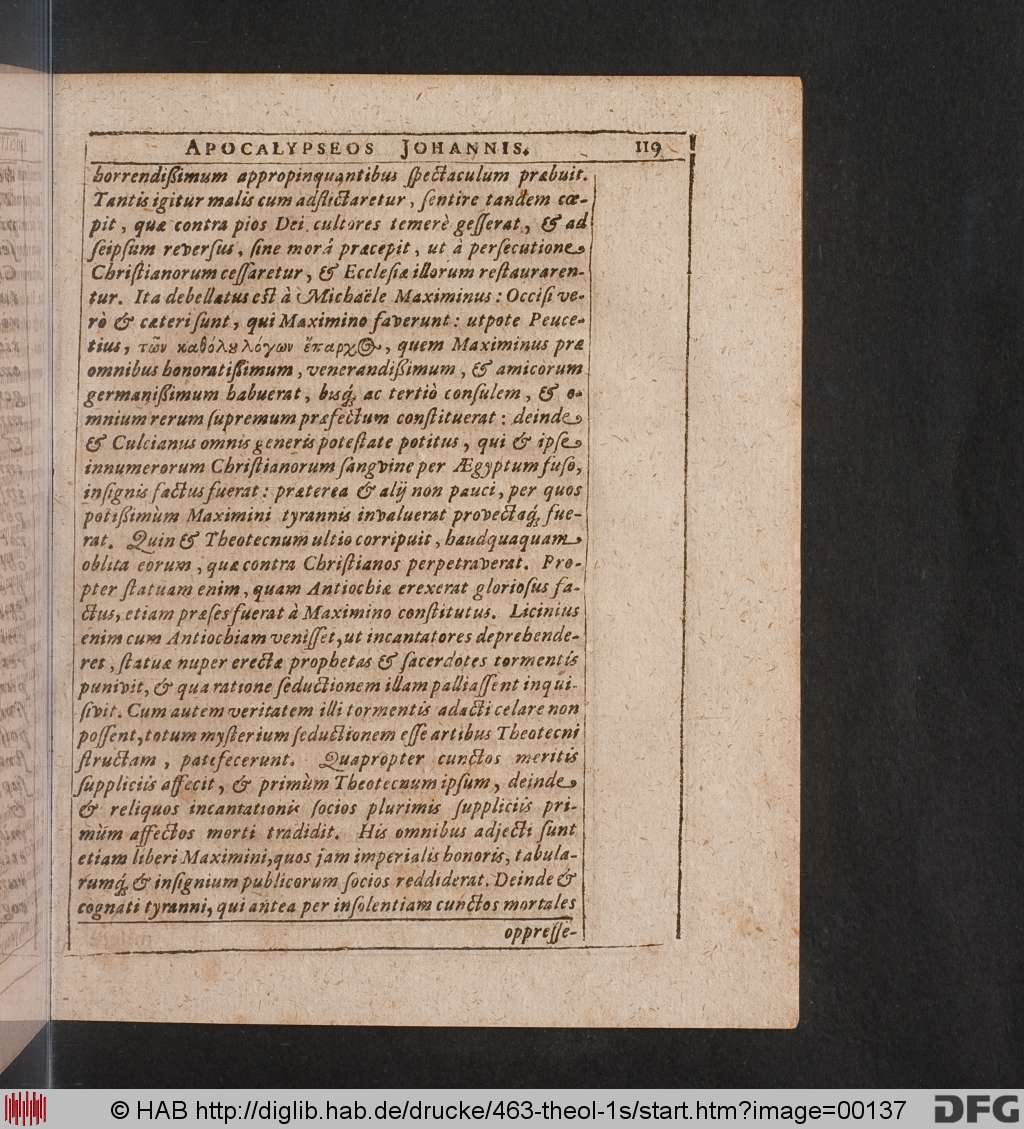 APOCALYPSEOS JOHANNIS. 119
horrendißimum appropinquantibus ſpectaculum præbuit.
Tantis igitur malis cum adflictaretur, ſentire tandem cœ-
pit, quæ contra pios Dei cultores temerè geſſerat, & ad
ſeipſum reverſus, ſine morâ præcepit, ut à perſecutione
Chriſtianorum ceſſaretur, & Eccleſiæ illorum reſtauraren-
tur. Ita debellatus eſt à Michaële Maximinus: Occiſi ve-
rò & cæteri ſunt, qui Maximino faverunt: utpote Peuce-
tius, τῶν καθόλȣ λόγων ἔπαρχ⊙, quem Maximinus præ
omnibus honoratißimum, venerandißimum, & amicorum
germanißimum habuerat, bisq́; ac tertiò conſulem, & o-
mnium rerum ſupremum præfectum conſtituerat: deinde
& Culcianus omnis generis poteſtate potitus, qui & ipſe
innumerorum Chriſtianorum ſangvine per Ægyptum fuſo,
inſignis factus fuerat: præterea & alij non pauci, per quos
potißimùm Maximini tyrannis invaluerat provectaq́; fue-
rat. Quin & Theotecnum ultio corripuit, haudquaquam
oblita eorum, quæ contra Chriſtianos perpetraverat. Pro-
pter ſtatuam enim, quam Antiochiæ erexerat glorioſus fa-
ctus, etiam præſes fuerat à Maximino conſtitutus. Licinius
enim cum Antiochiam veniſſet, ut incantatores deprehende-
ret, ſtatuæ nuper erectæ prophetas & ſacerdotes tormentis
punivit, & qua ratione ſeductionem illam palliaſſent inqui-
ſivit. Cum autem veritatem illi tormentis adacti celare non
poſſent, totum myſterium ſeductionem eſſe artibus Theotecni
ſtructam, patefecerunt. Quapropter cunctos meritis
ſuppliciis affecit, & primùm Theotecnum ipſum, deinde
& reliquos incantationis ſocios plurimis ſuppliciis pri-
mùm affectos morti tradidit. His omnibus adjecti ſunt
etiam liberi Maximini, quos jam imperialis honoris, tabula-
rumq́; & inſignium publicorum ſocios reddiderat. Deinde &
cognati tyranni, qui antea per inſolentiam cunctos mortales
oppreſſe-
© HAB http://diglib.hab.de/drucke/463-theol-1s/start.htm?image=00137
DFG